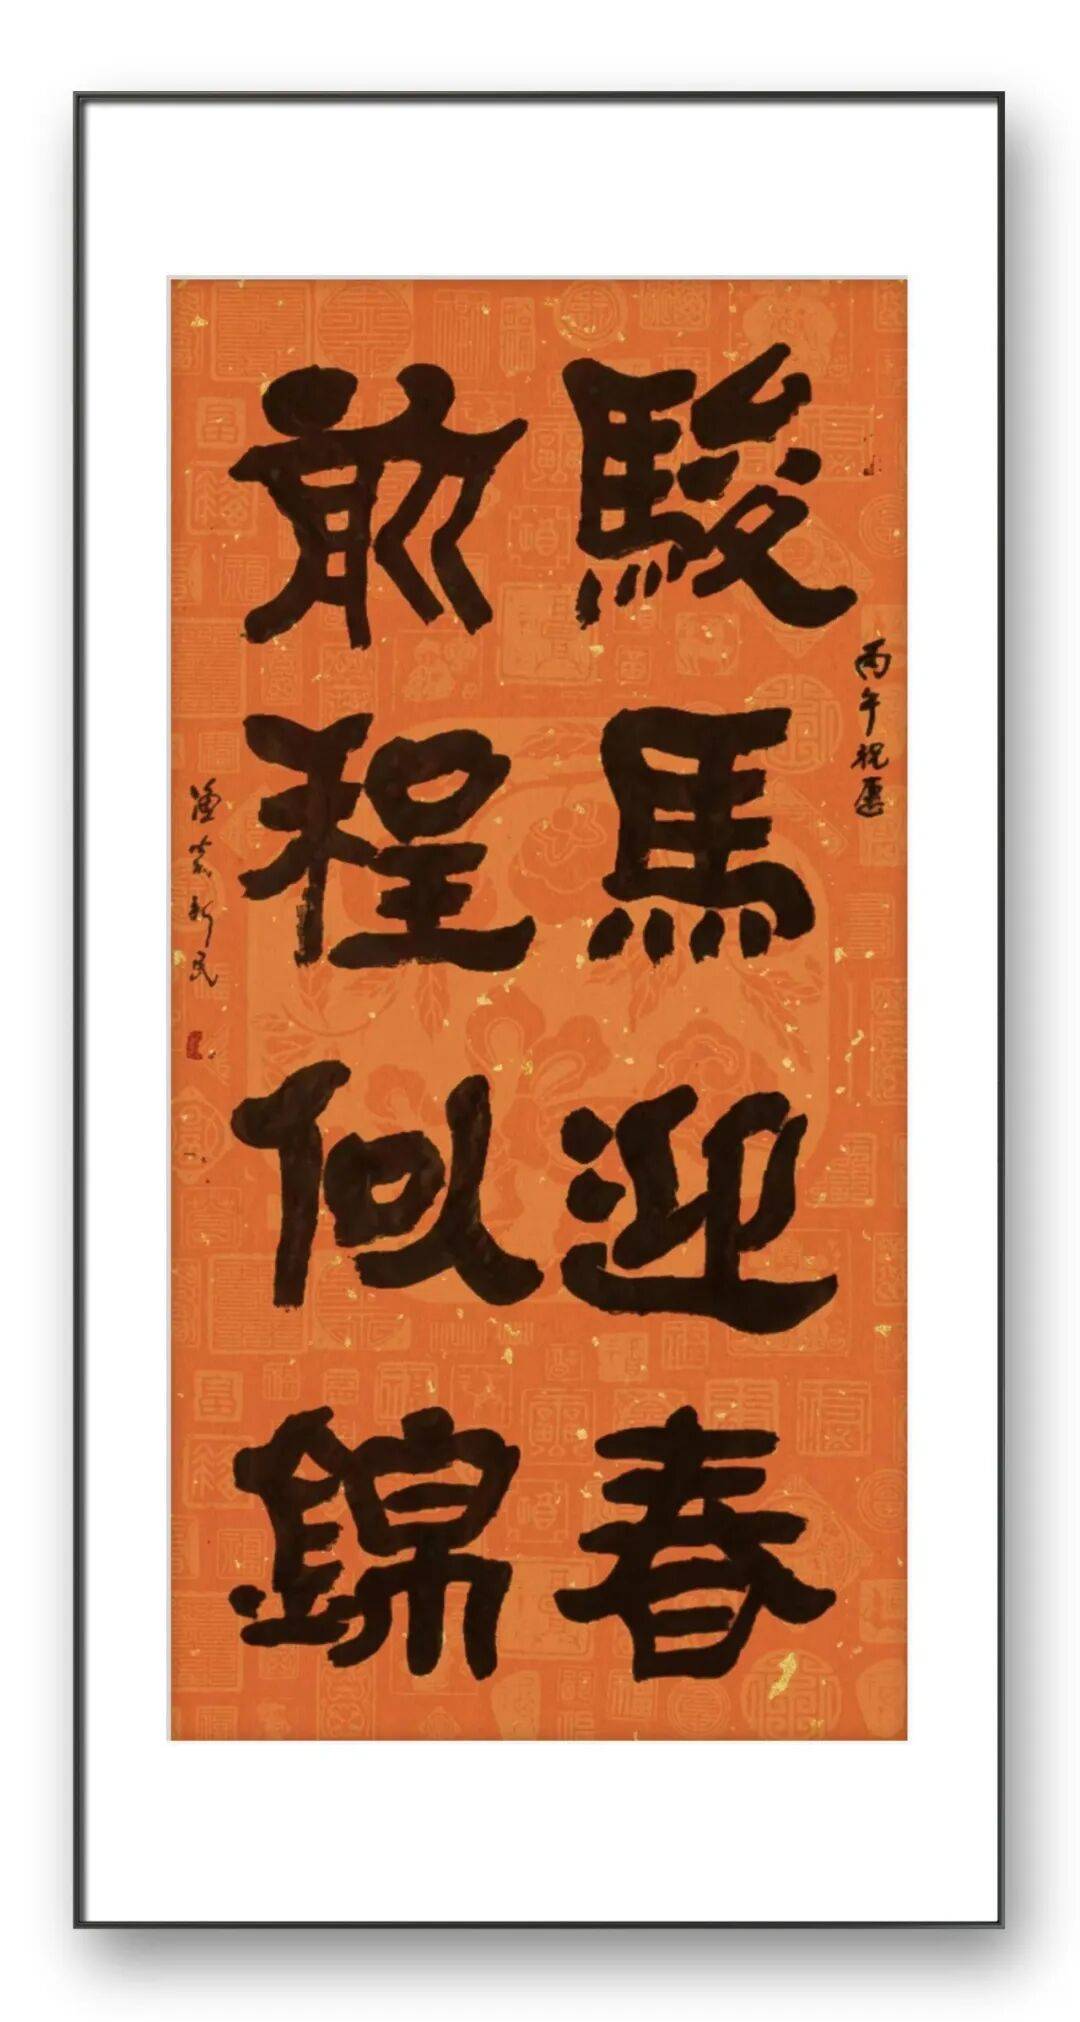 駿馬迎春
前程似錦
丙午祝愿
新民